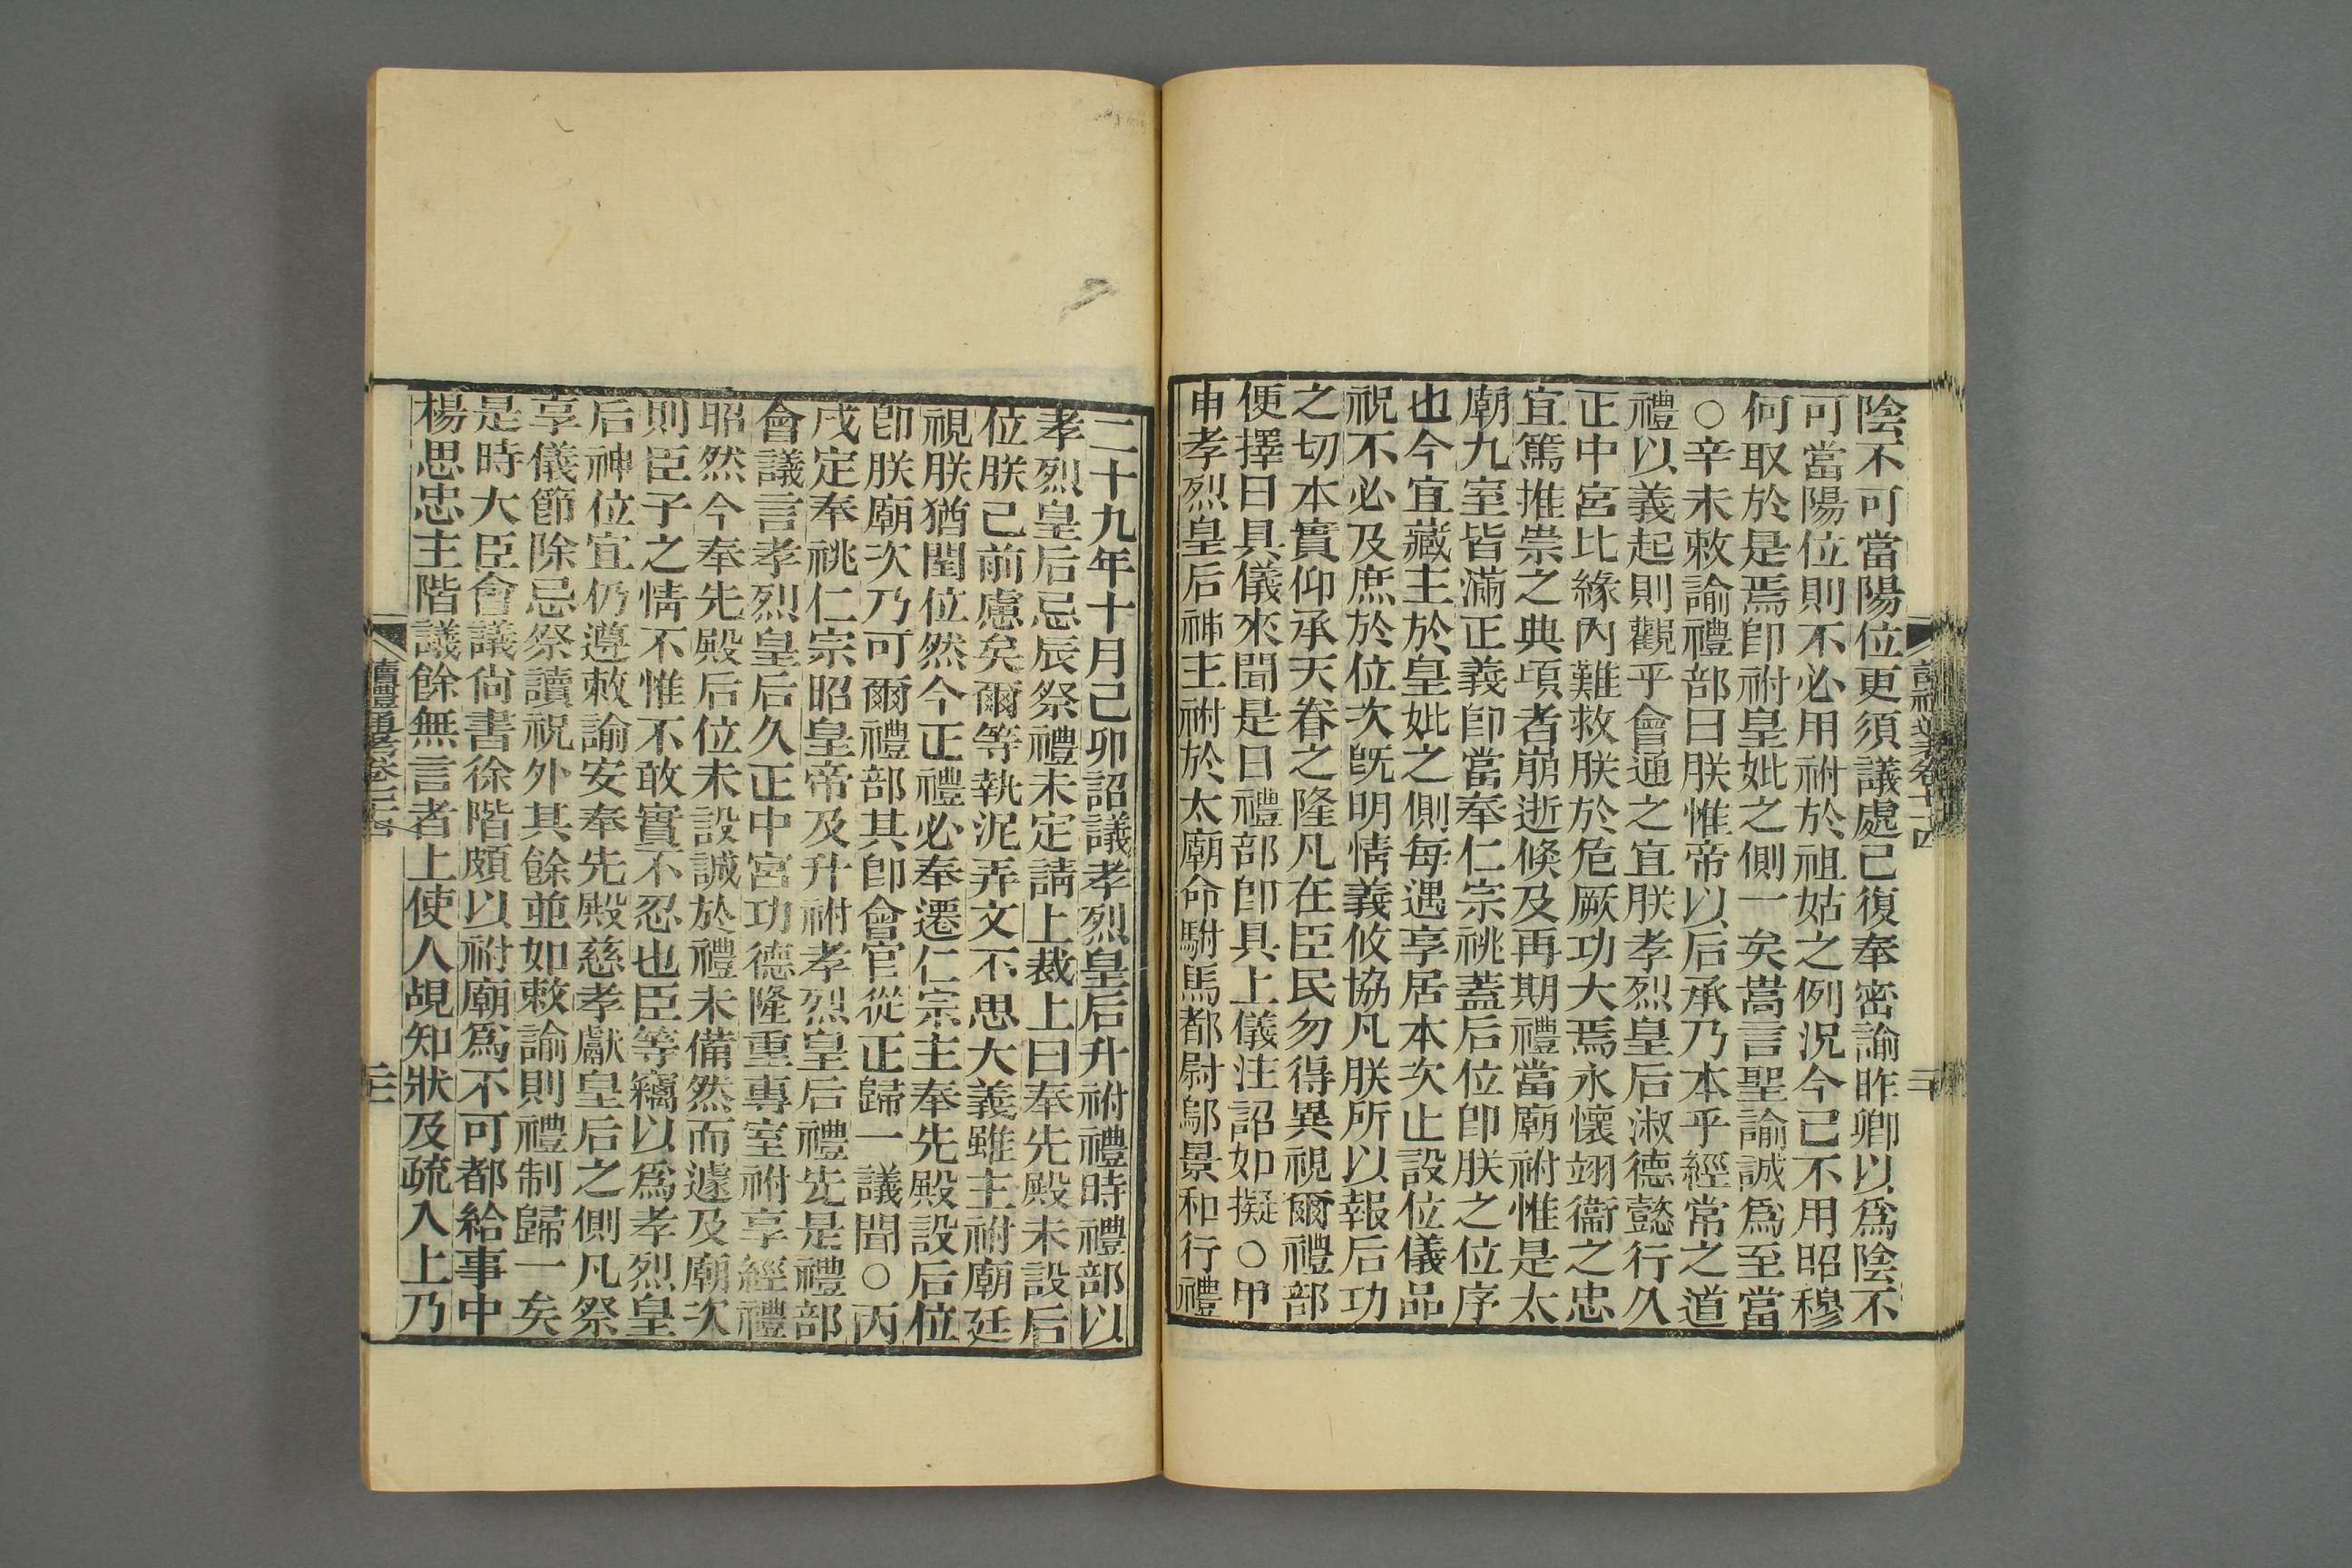 陰不可當陽位更須議處已復奉密諭昨卿以爲陰不
可當陽位則不必用祔於祖姑之例況今已不用昭穆
何取於是焉卽祔皇妣之側一矣嵩言聖諭誠爲至當
○辛未敕諭禮部曰朕惟帝以后承乃本乎經常之道
禮以義起則觀乎會通之宜朕孝烈皇后淑德懿行久
正中宮比緣內難救朕於危厥功大焉永懷翊衞之忠
宜篤推崇之典頃者崩逝倏及再期禮當廟祔惟是太
廟九室皆滿正義卽當奉仁宗祧蓋后位卽朕之位序
也今宜藏主於皇妣之側每遇享居本次止設位儀品
祝不必及庶於位次旣明情義攸協凡朕所以報后功
之切本實仰承天眷之隆凡在臣民勿得異視爾禮部
便擇日具儀來聞是日禮部卽具上儀注詔如擬○甲
申孝烈皇后神主祔於太廟命駙馬都尉鄔景和行禮
二十九年十月己卯詔議孝烈皇后升祔禮時禮部以
孝烈皇后忌辰祭禮未定請上裁上曰奉先殿未設后
位朕已前慮矣爾等執泥弄文不思大義雖主祔廟廷
視朕猶閏位然今正禮必奉遷仁宗主奉先殿設后位
卽朕廟次乃可爾禮部其卽會官從正歸一議聞○丙
戌定奉祧仁宗昭皇帝及升祔孝烈皇后禮先是禮部
會議言孝烈皇后久正中宮功德隆重專室祔享經禮
昭然今奉先殿后位未設誠於禮未備然而遽及廟次
則臣子之情不惟不敢實不忍也臣等竊以爲孝烈皇
后神位宜仍遵敕諭安奉先殿慈孝獻皇后之側凡祭
享儀節除忌祭讀祝外其餘並如敕諭則禮制歸一矣
是時大臣會議尙書徐階頗以祔廟爲不可都給事中
楊思忠主階議餘無言者上使人覘知狀及疏入上乃